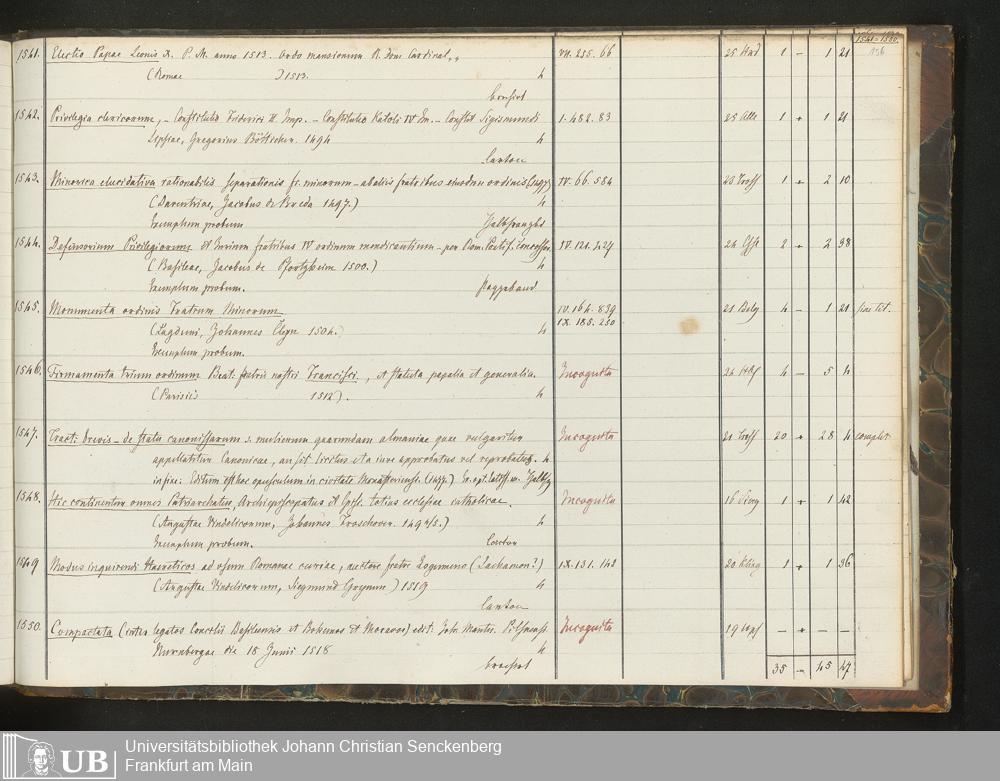 1541-1550.
1541. Electio Papae Leonis X. P. M. anno 1513. ordo mansionum R. Dom. Cardinal. VII. 255. 66 25 1 – 1 21
(Romae )1513. 4
broschirt
1542. Privilegia clericorum, – Constitutio Friderici II Imp. – Constitutio Karoli IV Im. – Constit Sigismundi 1. 482. 83 25 1 + 1 21
Lipsiae, Gregorius Bötticher. 1494 4
Carton
1543. Minorica elucidativa rationabilis separationis fr. minorum – ab aliis fratribus eiusdem ordinis IV. 66. 584 23 1 + 2 10
(Daventriae, Jacobus de Breda 1497.) 4
Exemplum probum Halbfranzbd
1544. Defensorium Privilegiorum et Jurium fratribus IV ordinum mendicantium – per Rom. Pontif. concessor. IV. 121. 427 24 2 + 2 38
(Basileae, Jacobus de Pfortzheim 1500.) 4
Exemplum probum. Pappeband
1545. Monumenta ordinis Fratrum Minorum IV. 164. 839 21 4 – 1 21 sine tit.
(Lugduni, Johannes Cleyn 1504.) 4 IX. 185. 250
Exemplum probum.
1546. Firmamenta trium ordinum Beat. patris nostri Francisci, et statuta papalia et generalia. Incognita 24 4 – 5 4
(Parisiis 1512). 4
1547. Tract: brevis – de statu canonissarum s. mulierum quarundam almaniae quae vulgariter Incognita 21 20 + 28 4 complet
appellantur Canonicae, an sit licitus et a iure approbatus vel reprobatus. 4
in fine: Editum est hoc opusculum in civitate Monasteriensi.
1548. Hic continentur omnes Patriarchatus, Archiepiscopatus et Episc. totius ecclesiae catholicae. Incognita 16 1 + 1 42
(Augustae Vindelicorum, Johannes Froschover. 1494/5.) 4
Exemplum probum. Carton
1549 Modus inquirendi Haereticos ad usum Romanae curiae, auctore fratre IX. 131. 142 20 1 + 1 36
(Augustae Vindelicorum, Siegmund Grymm) 1519 4
Carton
1550. Compactata (inter legatos Concilii Basileensis et Bohemos et Moravos) edit: Joh. Incognita 19 – + – –
Nurnbergae die 18 Junii 1518 4
broschirt 35 – 45 47
UB
Universitätsbibliothek Johann Christian Senckenberg
Frankfurt am Main